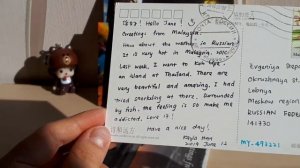 1887. Hello Jane!
Greetings from Malaysia.
How about the weather in Russian?
It is very hot in Malaysia, 40°C
Last week, I went to Koh Lipe,
an island at Thailand. There are
very beautiful and amazing. I had
tried snorkeling at there. Surrounded
by fish. the feeling is so make me
addicted. Love it!
Have a nice day!
2019 June 12
Evgeniya
Okruzhnaya
Lobnya
Moskow region
RUSSIAN
141730
MY-497221